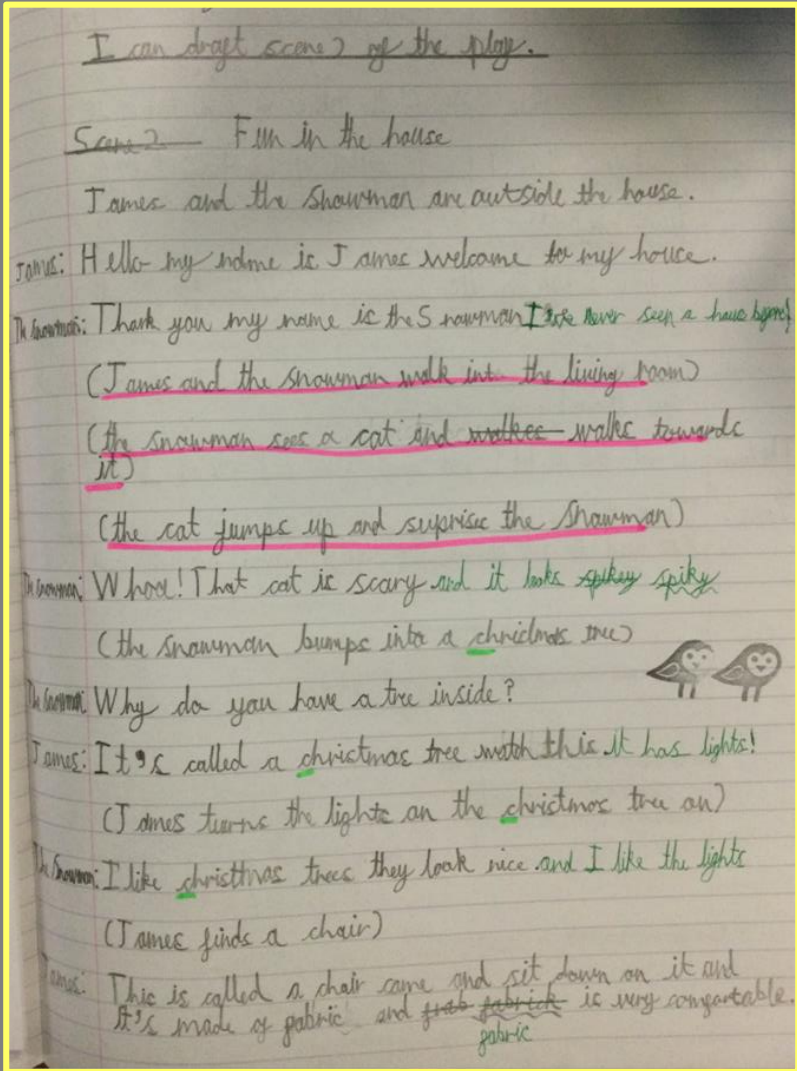 I can draft scene 2 of the play.
Scene 2 Fun in the house
James and the Snowman are outside the house.
James: Hello my name is James welcome to my house.
The Snowman: Thank you my name is the Snowman I have never seen a house before!
(James and the snowman walk into the living room)
(the snowman sees a cat and walkes walks towards
it)
(the cat jumps up and suprise the Snowman)
The Snowman: Whoa! That cat is scary and it looks spikey spiky
(the snowman bumps into a christmas tree)
The Snowman: Why do you have a tree inside?
James: It's called a christmas tree watch this it has lights!
(James turns the lights on the christmas tree on)
The Snowman: I like christmas trees they look nice and I like the lights
(James finds a chair)
James: This is called a chair come and sit down on it and
It's made of fabric and frab fabrick is very comfortable.
fabric